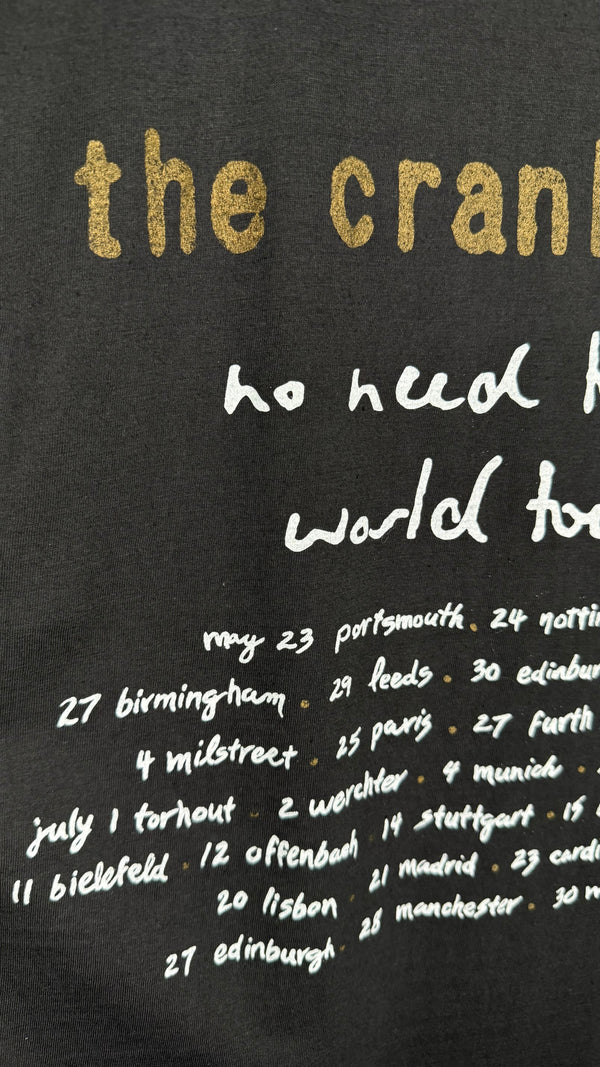 the cran
no need
world to
may 23 portsmouth . 24 notti
27 birmingham . 29 leeds . 30 edinbur
4 milstreet . 25 paris . 27 furth
july 1 torhout . 2 werchter . 4 munich .
11 bielefeld . 12 offenbach . 14 stuttgart . 15
20 lisbon . 21 madrid . 23 cardi
27 edinburgh . 28 manchester . 30 m